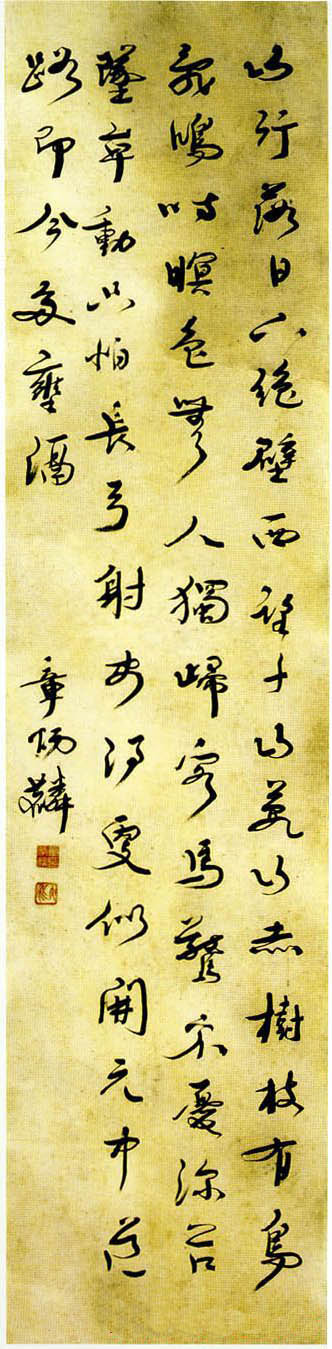 山行落日下絕壁西望千山萬山赤樹枝有鳥
亂鳴時暝色無人獨歸客馬驚不憂深谷
墜草動只怕長弓射安得更似開元中道
路即今多壅隔
章炳麟